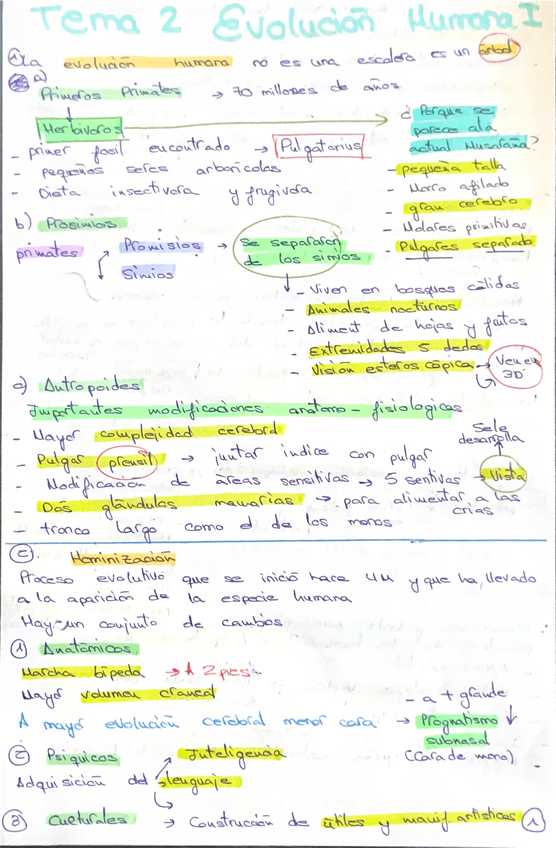 Tema 2 Evolución Humana I
① La evolución humana no es una escalera es un árbol
a)
Primeros Primates → 70 millones de años
Herbívoros
¿Porque se parece a la actual Musaraña?
- primer fosil encontrado → Pulgatorius
- pequeños seres arboricolas
- Dieta insectivora y frugivora
- pequeña talla
- Morro afilado
- gran cerebro
- Molares primitivas
- Pulgares separado
b) Prosimios
primates
Promisios → Se separaron de los simios
Simios
- Viven en bosques cálidas
- Animales nocturnos
- Aliment de hojas y frutos
- Extremidades 5 dedos
- Visión esteros cópica → Ven en 3D
c) Antropoides
Importantes modificaciones anatomo-fisiologicas
- Mayor complejidad cerebral
- Pulgar prensil → juntar indice con pulgar
- Modificación de áreas sensitivas → 5 sentivas → Vista
Se le desarrolla
- Dos glándulas mamarias → para alimentar a las crias
- tronco largo como el de los monos
②. Hominización
Proceso evolutivo que se inició hace 4M y que ha llevado
a la aparición de la especie humana
Hay un conjunto de cambios
① Anatómicos
Marcha bípeda → A 2 pies
Mayor volumen craneal
A mayor evolución cerebral, menor cara → Prognatismo subnasal
- a + grande
(Cara de mono)
② Psiquicos
Inteligencia
Adquisición del lenguaje
③ Culturales → Construcción de útiles y manif artísticas ①